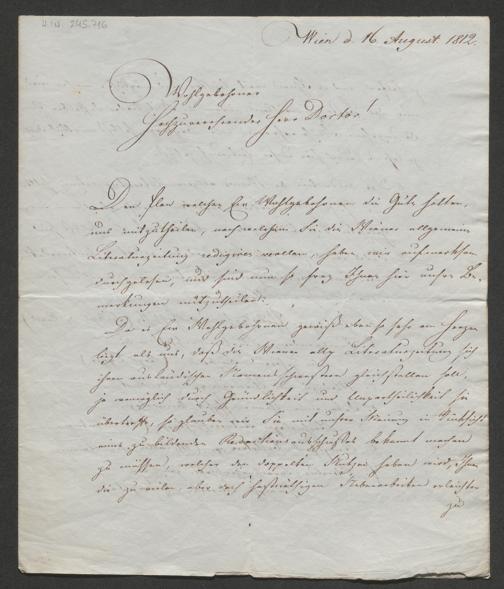 H.I.N. 245.716
Wien d. 16 August. 1812.
Wohlgebohrner
Hochzuverehrender Herr Doctor!
Den Plan welchen Euer Wohlgebohrnen die Güte hatten,
uns mitzutheilen, nach welchem Sie die Wiener allgemeine
Literaturzeitung redigiren wollen, haben wir aufmerksam
durchgelesen, und sind nun so frey Ihnen hier unsre Be-
merkungen mitzutheilen.
Da es Euer Wohlgebohrnen gewiß eben so sehr am Herzen
liegt als uns, daß die Wiener allg Literaturzeitung sich
ihren ausländischen Namensschwestern gleichstellen soll,
ja womöglich durch Gründlichkeit und Unpartheilichkeit sie
übertreffe, so glauben wir Sie mit unsrer Meinung in Hinsicht
eines zu bildenden Redactionsausschußes bekannt machen
zu müssen, welcher den doppelten Nutzen haben wird, Ihnen
die zu vielen, aber doch Nebenarbeiten erleichtern
zu